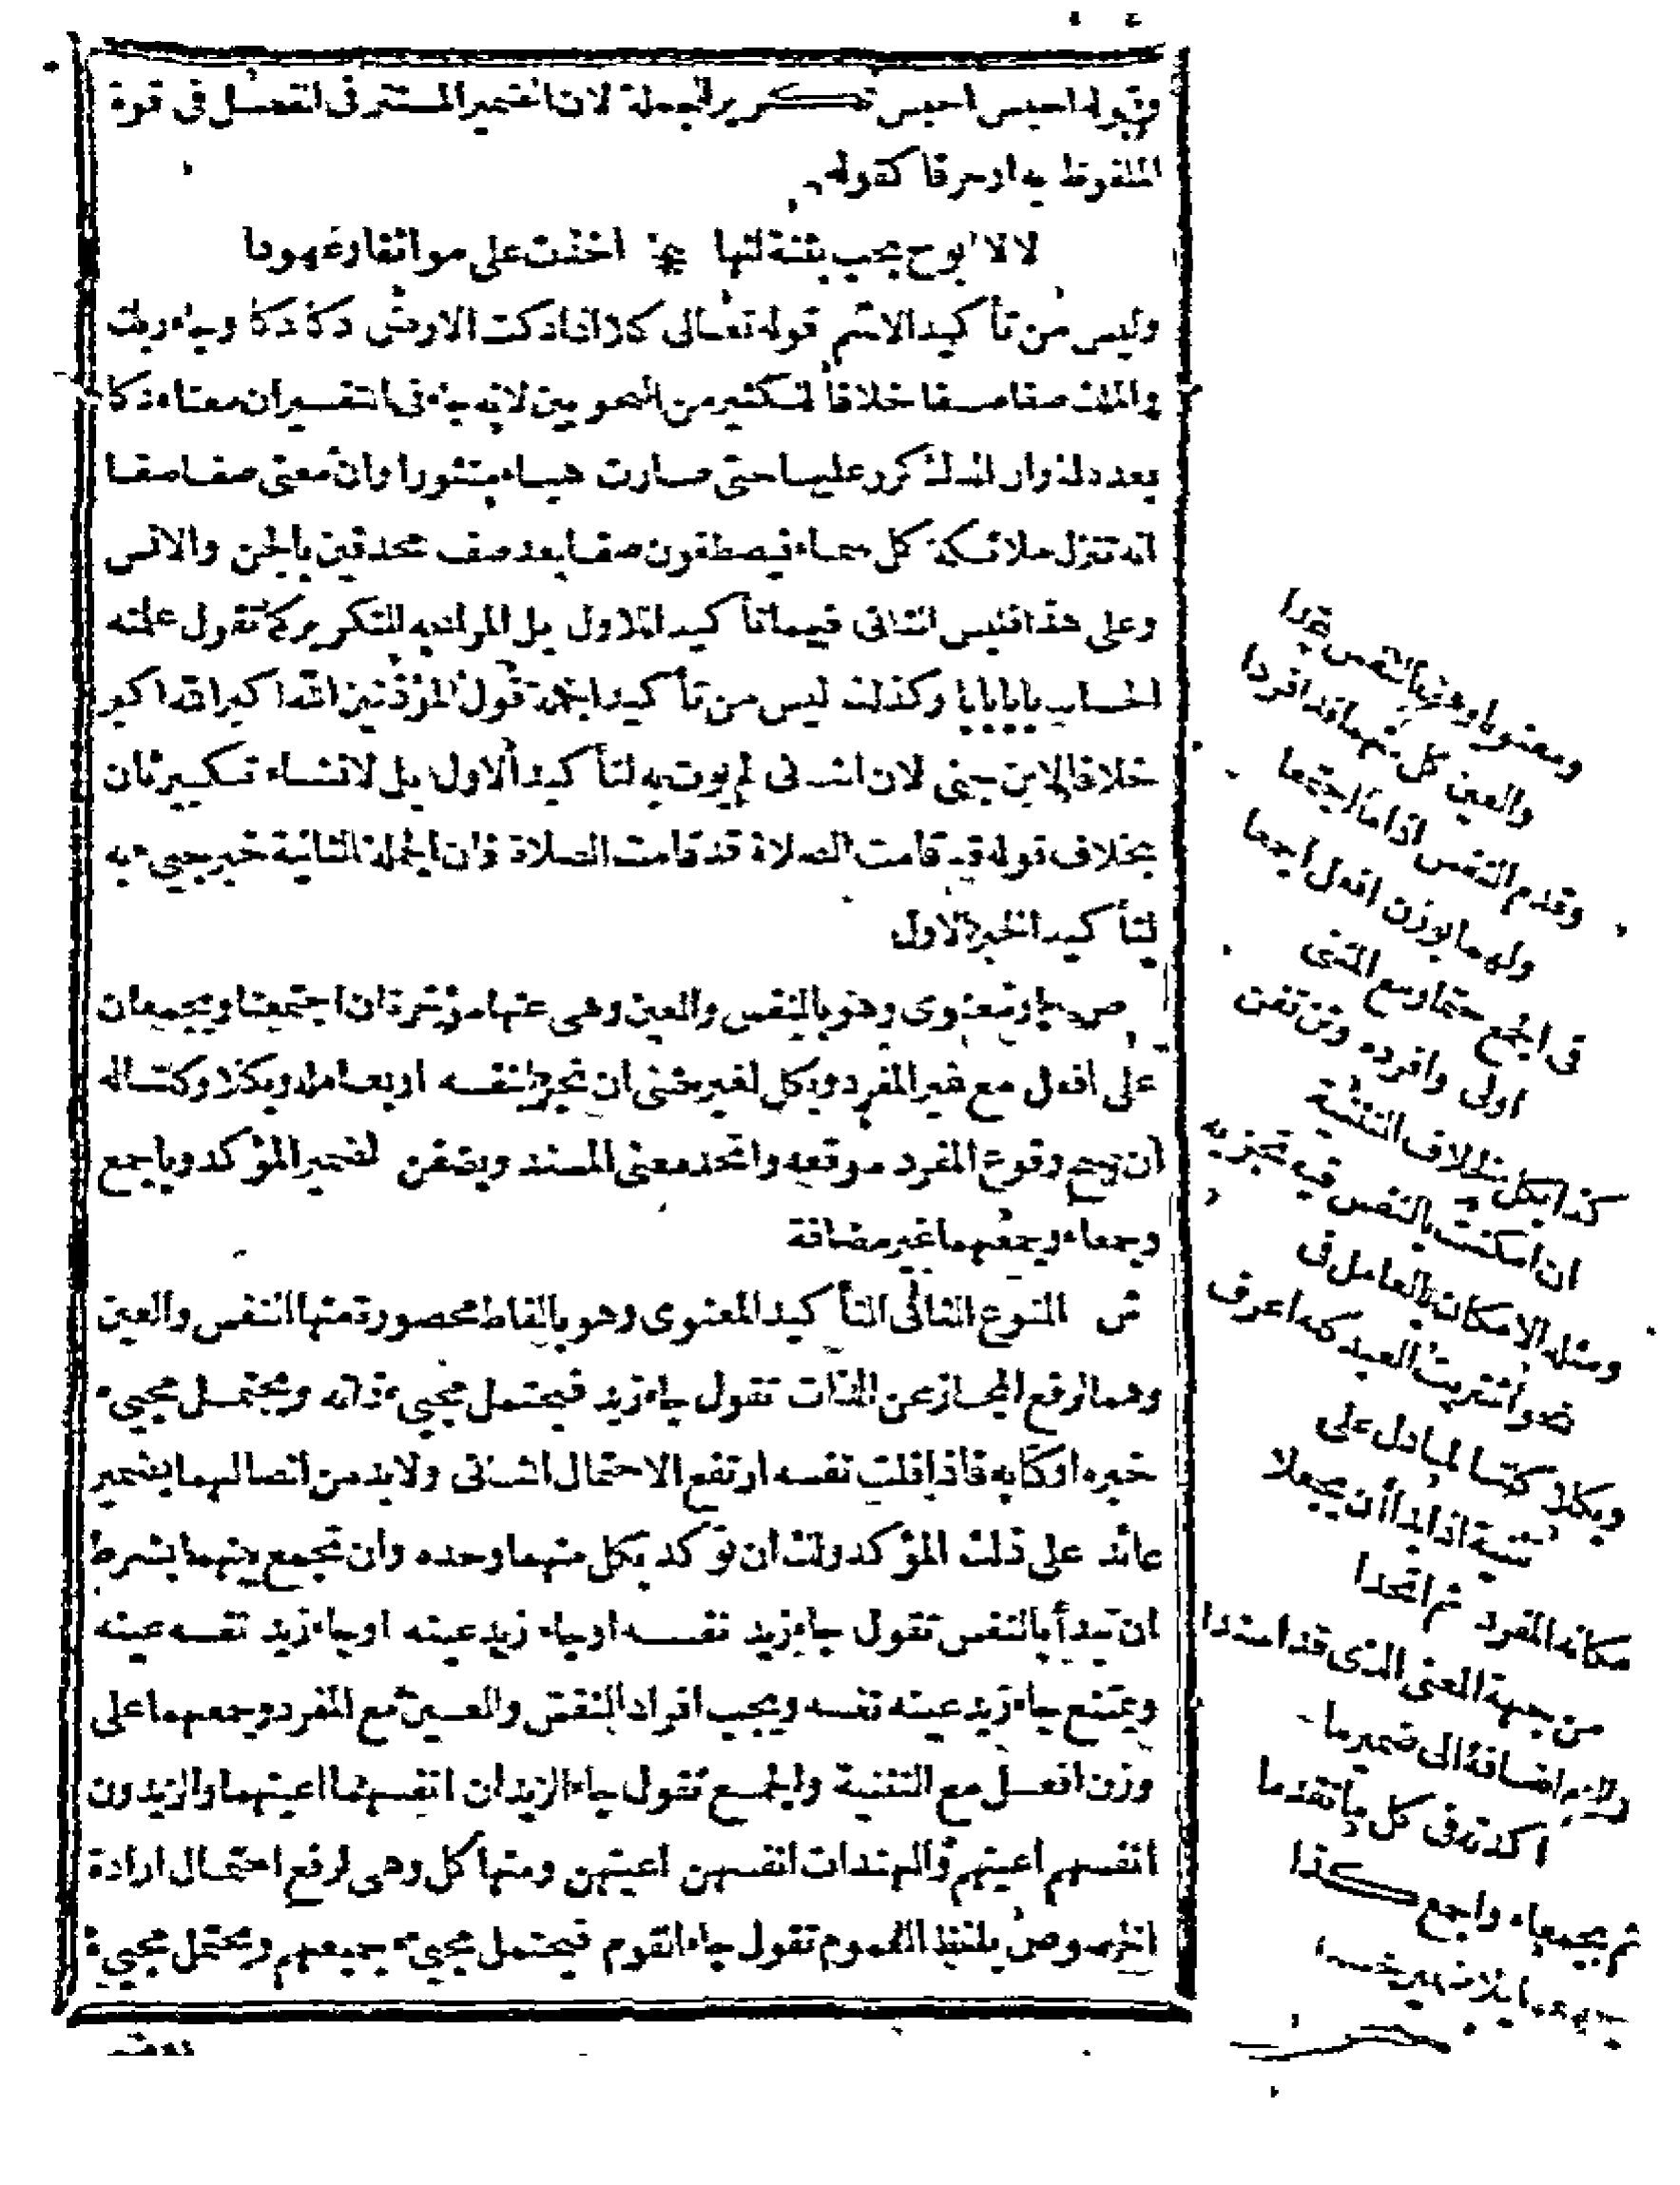 وقوله احبس احبس تكرير للجملة لان الضمير المستتر في الفعل في قوة
الملفوظ به او حرفا كقوله
لا لا ابوح بحب بثنة انها اخذت على مواثقا وعهودا
وليس من تأكيد الاسم قوله تعالى كلا اذا دكت الارض دكا دكا وجاء ربك
والملك صفا صفا خلافا لكثير من النحويين لانه جاء في التفسير ان معناه دكا
بعد دك وان الدك كرر عليها حتى صارت هباء منثورا وان معنى صفا صفا
انه تنزل ملائكة كل سماء فيصطفون صفا بعد صف محدقين بالجن والانس
وعلى هذا فليس الثاني فيهما تأكيدا للاول بل المراد به التكرير كما تقول علمته
الحساب بابا بابا وكذلك ليس من تأكيد الجملة قول المؤذنين الله اكبر الله اكبر
خلافا لابن جني لان الثاني لم يؤت به لتأكيد الاول بل لانشاء تكبير ثان
بخلاف قوله قد قامت الصلاة قد قامت الصلاة فان الجملة الثانية خبر جيء به
لتأكيد الخبر الاول
ص او معنوي وهو بالنفس والعين وهي عنها مؤخرة ان اجتمعتا ويجمعان
على افعل مع غير المفرد وبكل لغير مثنى ان تجزأ بنفسه او بعامله وبكلا وكلتا له
ان صح وقوع المفرد موقعه واتحد معنى المسند ويضفن لضمير المؤكد وباجمع
وجمعاء وجمعهما غير مضافة
ش النوع الثاني التأكيد المعنوي وهو بالفاظ محصورة منها النفس والعين
وهما لرفع المجاز عن الذات تقول جاء زيد فيحتمل مجيء ذاته ويحتمل مجيء
خبره او كتابه فاذا قلت نفسه ارتفع الاحتمال الثاني ولا بد من اتصالهما بضمير
عائد على ذلك المؤكد ولك ان تؤكد بكل منهما وحده وان تجمع بينهما بشرط
ان تبدأ بالنفس تقول جاء زيد نفسه او جاء زيد عينه او جاء زيد نفسه عينه
ويمتنع جاء زيد عينه نفسه ويجب افراد النفس والعين مع المفرد وجمعهما على
وزن افعل مع التثنية والجمع تقول جاء الزيدان انفسهما اعينهما والزيدون
انفسهم اعينهم والهندات انفسهن اعينهن ومنها كل وهي لرفع احتمال ارادة
الخصوص بلفظ العموم تقول جاء القوم فيحتمل مجيء جميعهم ويحتمل مجيء
ومعنويا وفي النفس غدا
والعين كل منهما قد افردا
وقدم النفس اذا ما اجتمعا
ولهما بوزن افعل اجمعا
في الجمع حتما ومع المثنى
اولى وافرده
كذا بكل بخلاف التثنية
ان امكنت بالنفس فيه تجزيه
ومثله الامكان بالعامل في
نحو اشتريت العبد كله اعرف
وبكلا كلتا لما دل على
تثنية اذا بدا أن يجعلا
مكانه المفرد ثم اتحدا
من جهة المعنى الذي قد اسندا
ولازم اضافة الى ضمير ما
اكدته في كل ما تقدما
ثم بجمعاء واجمع كذا